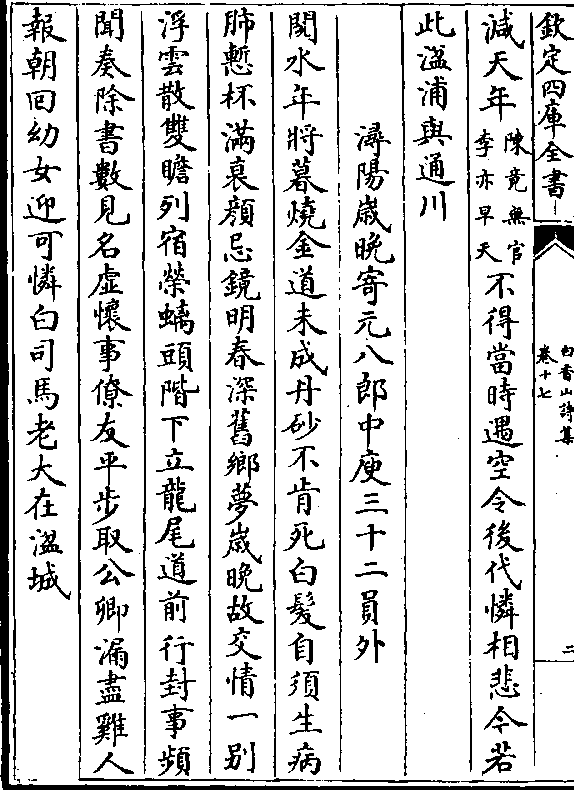 欽定四庫全書
白香山詩集
卷十七
二
減天年
陳竟無官
李亦早夭
不得當時遇空令後代憐相悲今若
此湓浦與通川
潯陽歲晚寄元八郎中庾三十二員外
閱水年將暮燒金道未成丹砂不肯死白髮自須生病
肺慙杯滿衰顔忌鏡明春深舊鄉夢歲晚故交情一别
浮雲散雙瞻列宿榮螭頭階下立龍尾道前行封事頻
聞奏除書數見名虚懷事僚友平步取公卿漏盡雞人
報朝回幼女迎可憐白司馬老大在湓城